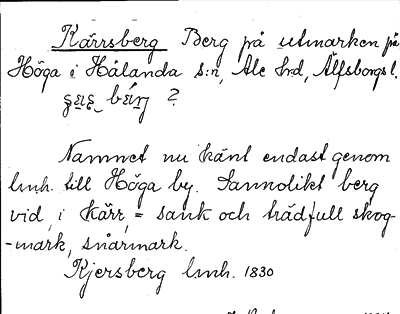 Kärrsberg Berg på utmarken på
Höga i Hålanda s:n, Ale hrd, Älfsborgs l.
?
Namnet nu känt endast genom
lmh. till Höga by. Sannolikt berg
vid, i kärr, = sank och trädfull skog-
-mark, snårmark.
Kjersberg lmh. 1830